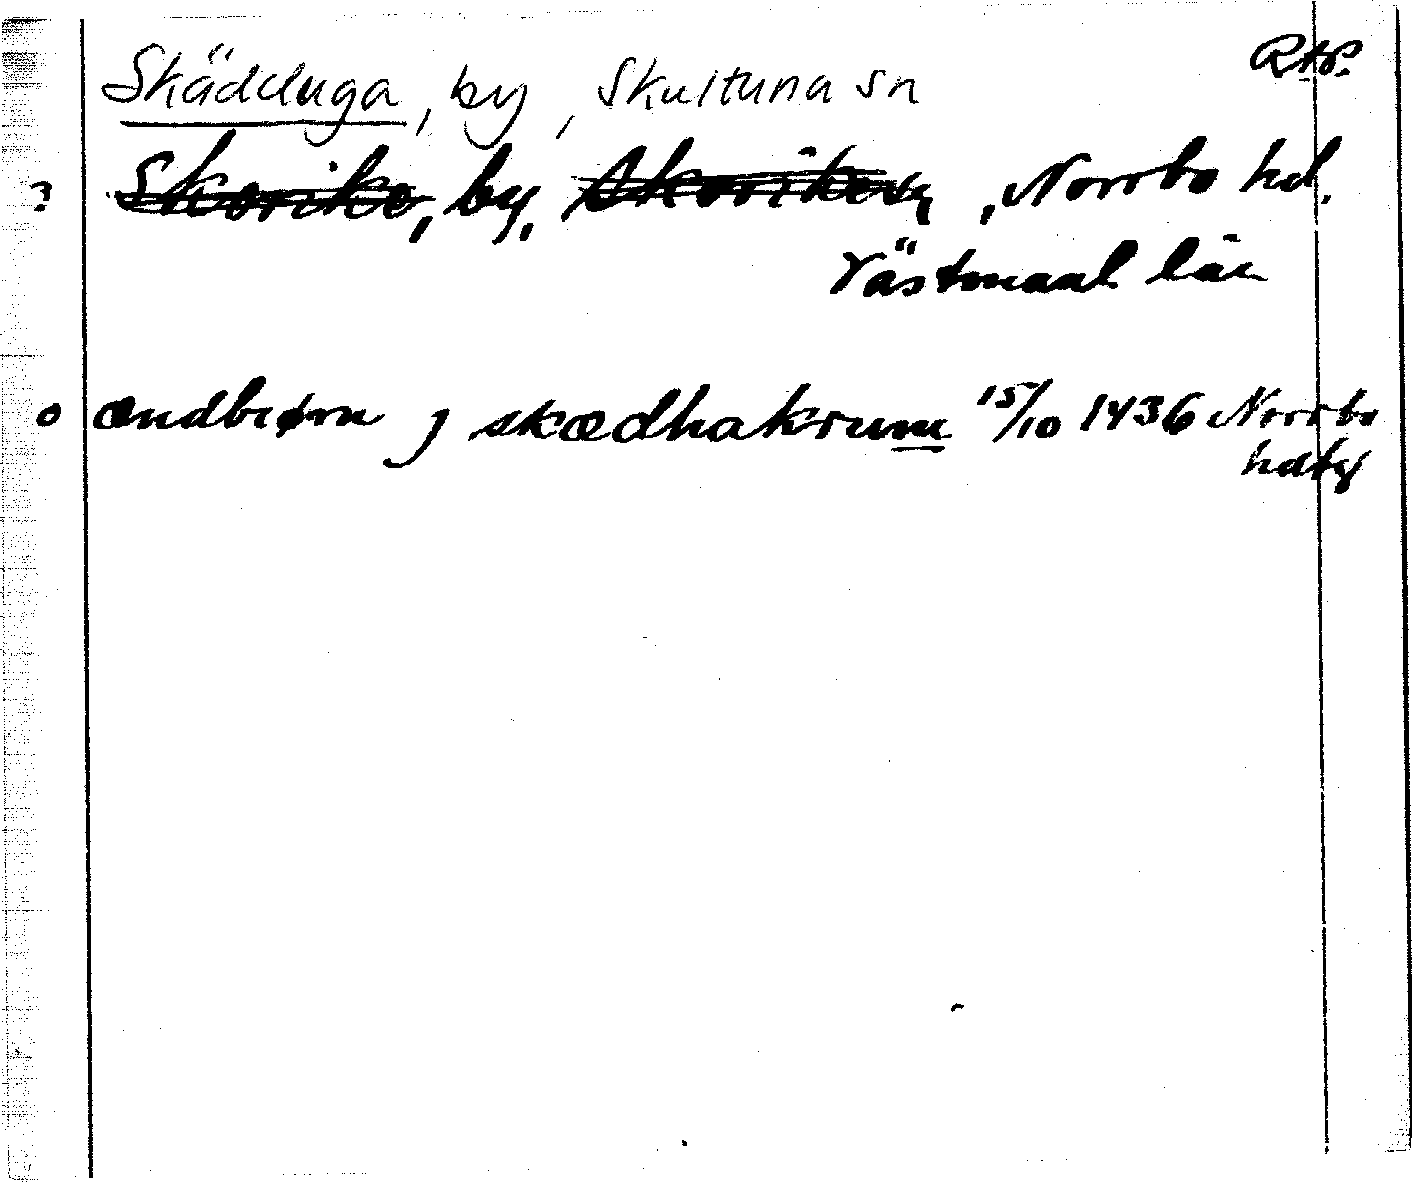 RAP.
Skädduga, by, Skultuna sn
? Skerike, by, Skerike sn, Norrbo hd.
Västmanl län
o ændbiørn j skædhakrum 15/10 1436 Norrbo
hdtg